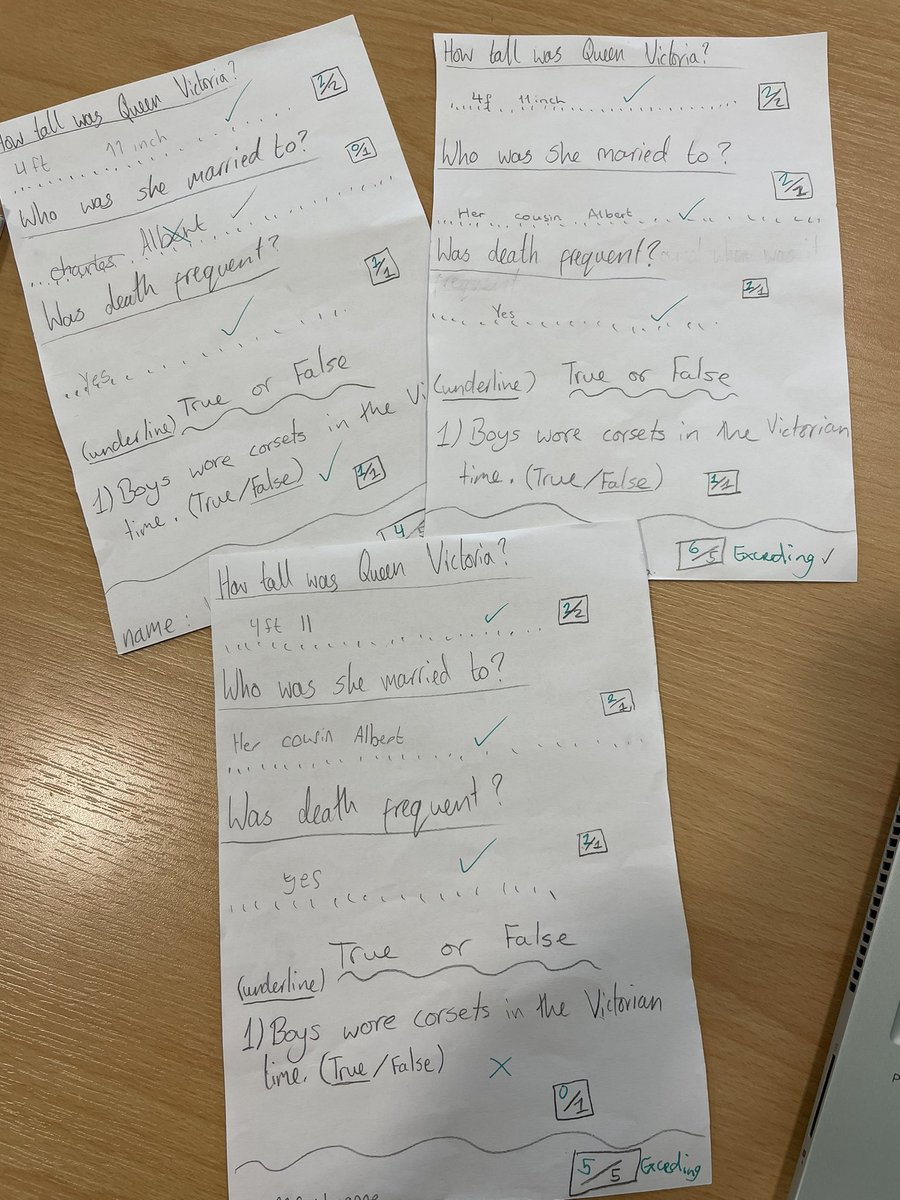 How tall was Queen Victoria?
2/2
4ft 11 inch
Who was she married to?
0/1
charles Albert
Was death frequent?
1/1
Yes
(underline) True or False
1) Boys wore corsets in the Vi
time. (True/False)
1/1
4
name :
How tall was Queen Victoria?
4f 11 inch
2/2
Who was she maried to?
2/1
Her cousin Albert
Was death frequent?
1/1
Yes
(underline) True or False
1) Boys wore corsets in the Victorian
time. (True/False)
1/1
6/5 Exceding
How tall was Queen Victoria?
4ft 11
2/2
Who was she married to?
2/1
Her cousin Albert
Was death frequent?
1/1
yes
True or False
(underline)
1) Boys wore corsets in the Victorian
time. (True/False)
0/1
5/5 Exceding